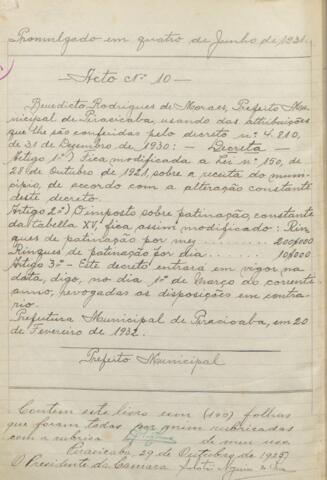 Promulgado em quatro de Junho de 1931.
Acto Nº 10
Benedicto Rodrigues de Moraes, Prefeito Mu-
nicipal de Piracicaba, usando das attribuições
que lhe são conferidas pelo decreto nº 4.810,
de 31 de Dezembro de 1930: - Decreta -
Artigo 1º) Fica modificada a Lei nº 150, de
28 de Outubro de 1921, sobre a receita do muni-
cipio, de accordo com a alteração constante
deste decreto.
Artigo 2º) O imposto sobre patinação, constante
da tabella XV, fica, assim modificado: Rin-
ques de patinação por mez ..... 200$000
Rinques de patinação por dia ..... 10$000
Artigo 3º - Este decreto entrará em vigor na
data, digo, no dia 1º de Março do corrente
anno, revogadas as disposições em contra-
rio.
Prefeitura Municipal de Piracicaba, em 20
de Fevereiro de 1932.
Prefeito Municipal
Contem este livro cem (100) folhas
que foram todas por mim rubricadas
com a rubrica de meu uso
Piracicaba, 29 de Outubro de 1925
O Presidente da Camara